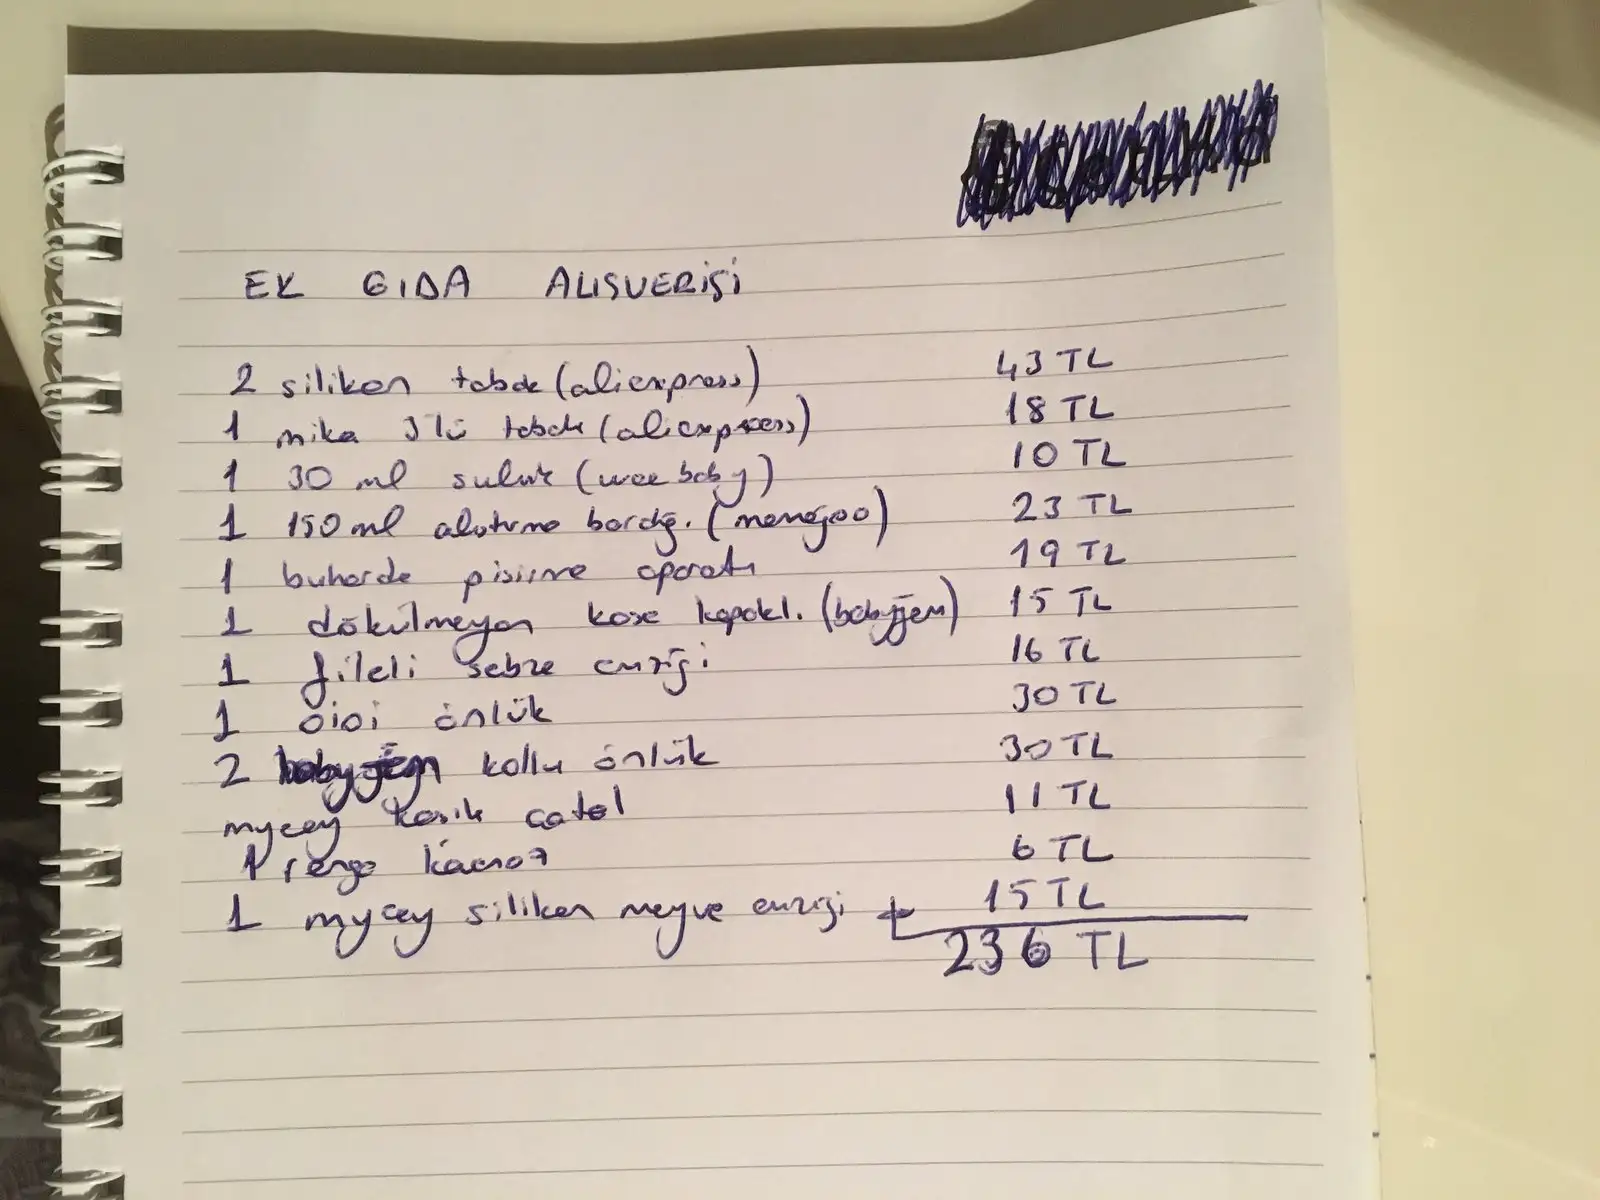 EK GIDA ALIŞVERİŞİ
2 silikon tabak (aliexpress) 43 TL
1 mika 3'lü tabak (aliexpress) 18 TL
1 30 ml suluk (wee baby) 10 TL
1 150 ml alıştırma bardğ. (mamajoo) 23 TL
1 buharda pişirme aparatı 19 TL
1 dökülmeyan kase kapakl. (babyjem) 15 TL
1 fileli sebze emziği 16 TL
1 oioi önlük 30 TL
2 babyjem kollu önlük 30 TL
mycey kaşık çatal 11 TL
1 rende 6 TL
1 mycey silikon meyve emziği + 15 TL
236 TL